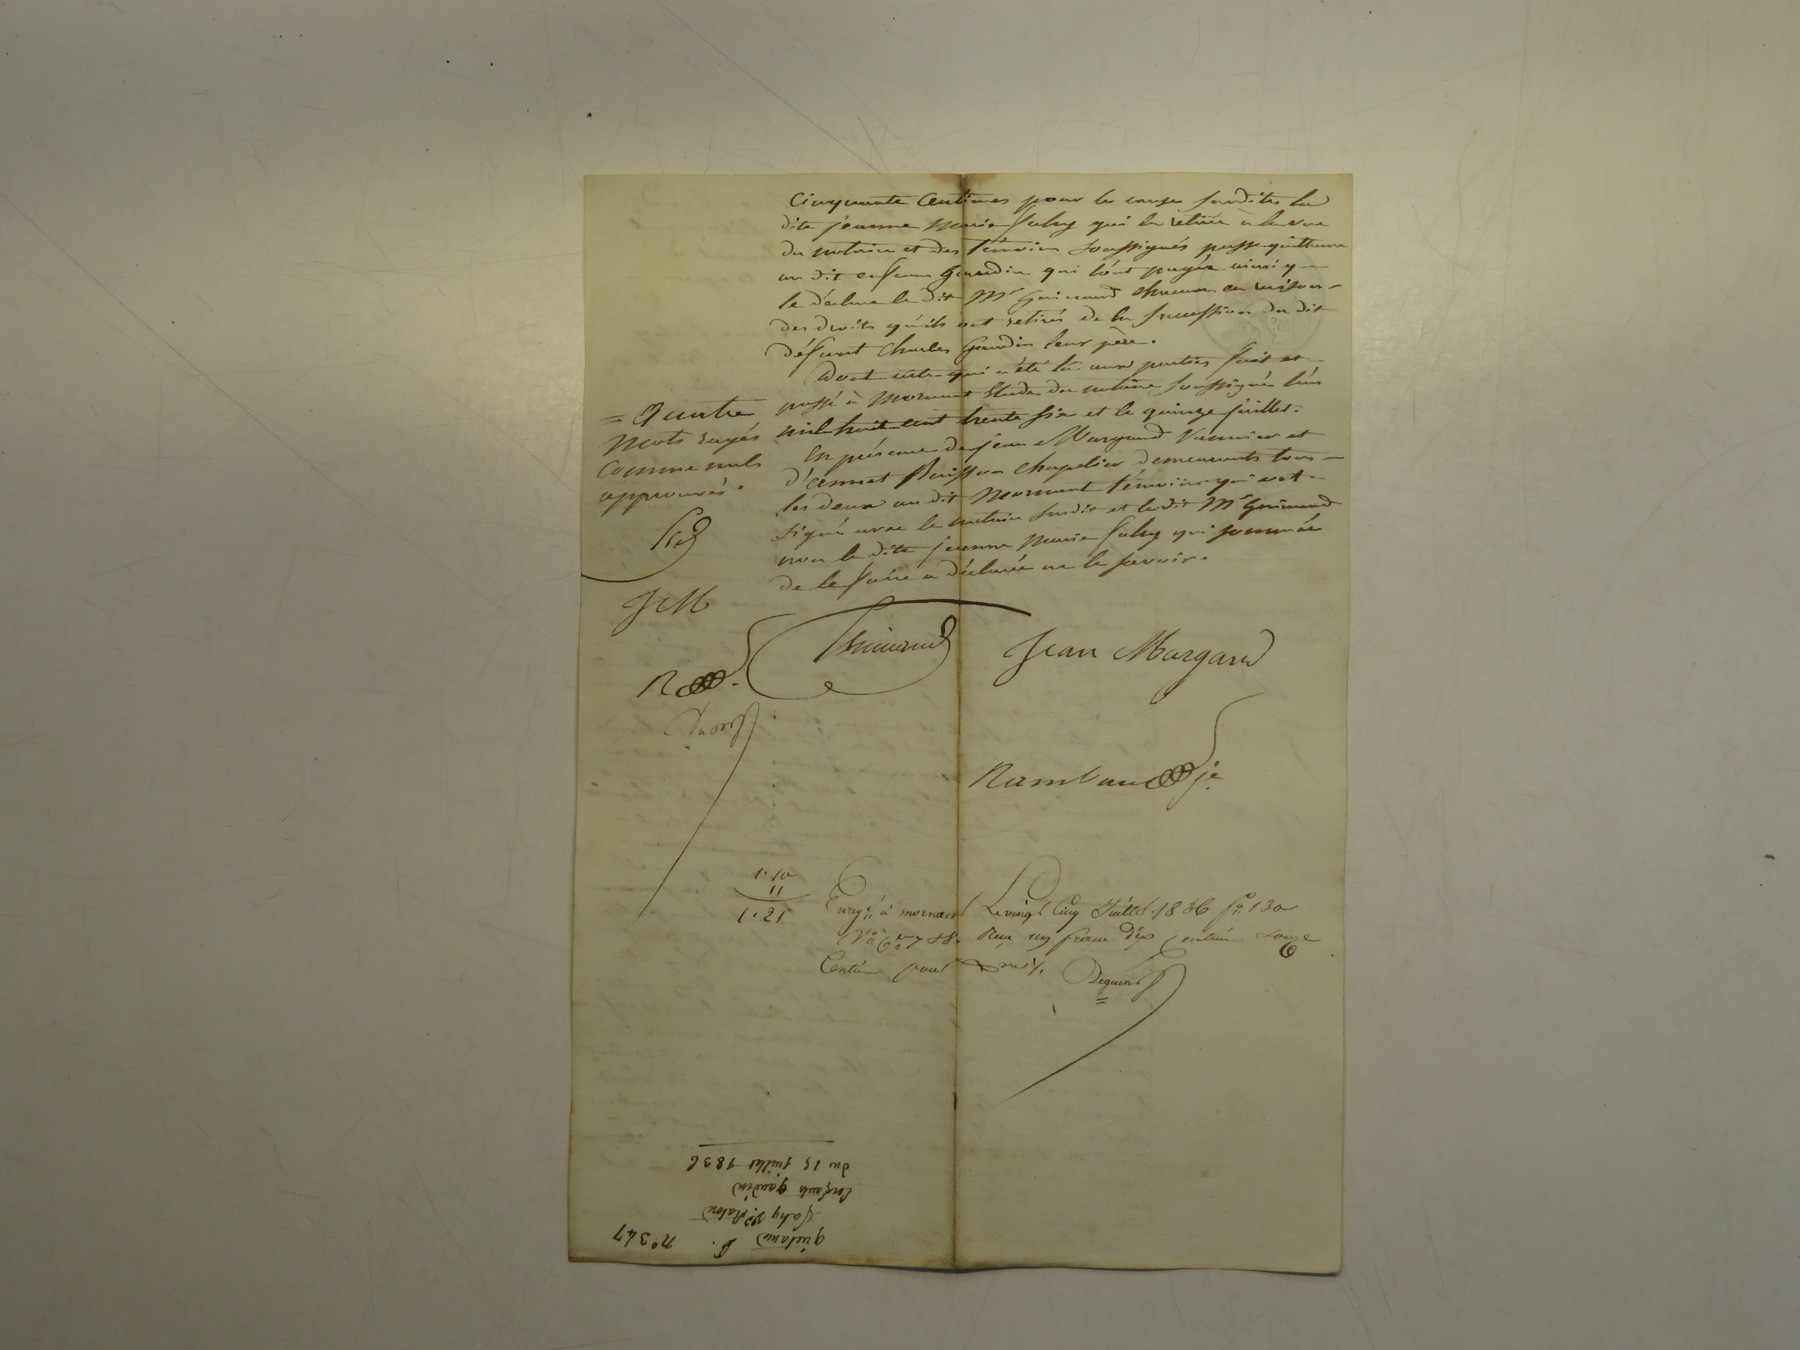 cinquante centimes pour les causes susdites la
dite jeanne Marie Fahy qui les a retirés à la vue
du notaire et des témoins soussignés passe quittance
au dit enfans Gaudin qui l'ont payée ainsi y
le déclare le dit Mr Guinand chacun en raison
des droits qu'ils ont retirés de la succession du dit
défunt Charles Gaudin leur père.
Dont acte qui a été lu aux parties fait et
passé à Mornant Etude du notaire soussigné l'an
mil huit cent trente six et le quinze juillet.
En présence de jean Margand Vannier et
d'ennat Buisson chapelier demeurants tous
les deux au dit Mornant témoins qui ont
signé avec le notaire susdit et le dit Mr Guinand
non la dite jeanne Marie Fahy qui sommée
de le faire a déclarée ne le savoir.
= Quatre
mots rayés
comme nuls
approuvés.
JM
Guinand
Jean Margand
R
Rambaud je.
1.10
11
1.21
Enregé à mornant Le vingt Cinq Juillet 1836 fo 130
Vo Reçu un franc dix centimes onze
Centimes pour
n° 347
quittance
Fahy Ve
Enfants gaudin
du 15 juillet 1836